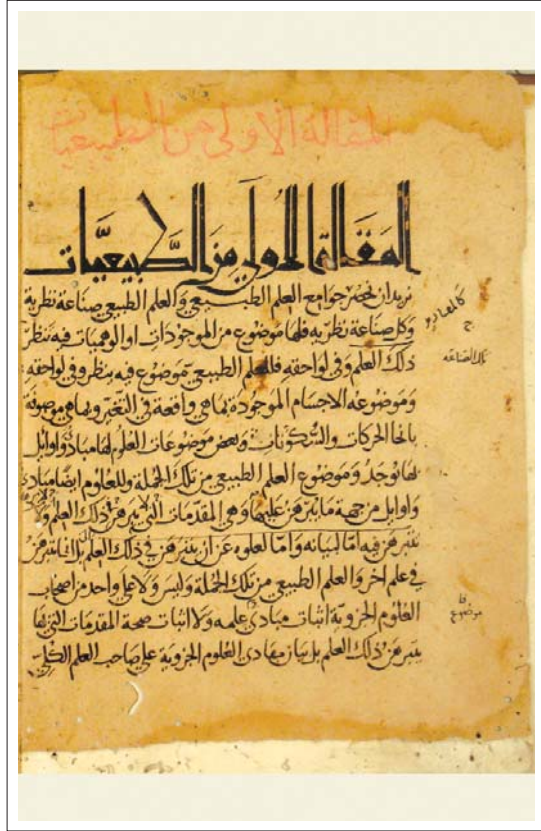 المقالة الاولى من الطبيعيات
المقالة الاولى من الطبيعيات
نريد ان نحصر جوامع العلم الطبيعي والعلم الطبيعي صناعة نظرية
وكل صناعة نظرية فلها موضوع من الموجودات او الوهميات فيه تنظر
ذلك العلم وفي لواحقه فللعلم الطبيعي موضوع فيه ينظر وفي لواحقه
وموضوعه الاجسام الموجودة بما هي واقعة في التغير وبما هي موصوفة
بانحا الحركات والسكونات وبعض موضوعات العلوم لها مباد واوايل
لها توجد وموضوع العلم الطبيعي من تلك الجملة وللعلوم ايضا مبادئ
واوايل من جهة ما يتبرهن عليها وهي المقدمات التي تبرهن ذلك العلم ولا
تتبرهن فيه اما لبيانه واما لعلوه عن ان يتبرهن في ذلك العلم بل انما يتبرهن
في علم اخر والعلم الطبيعي من تلك الجملة وليس ولا على واحد من اصحاب
العلوم الجزوية اثبات مبادئ علمه ولا اثبات صحة المقدمات التي بها
يتبرهن ذلك العلم بل بيان مبادئ العلوم الجزوية على صاحب العلم الكلي
تلك الصناعه
موضوع